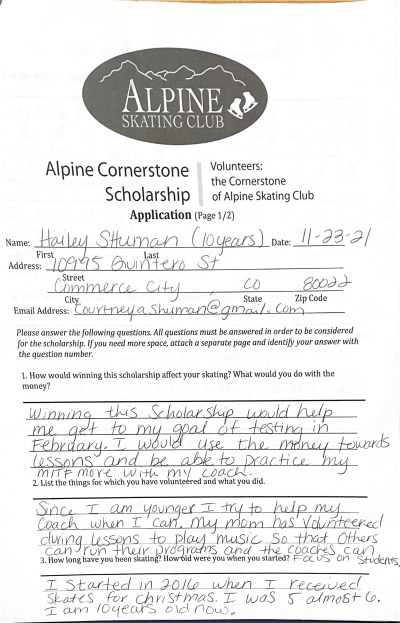 ALPINE
SKATING CLUB
Alpine Cornerstone
Scholarship
Volunteers:
the Cornerstone
of Alpine Skating Club
Application (Page 1/2)
Name: Hailey Shuman (10 years) Date: 11-23-21
First Last
Address: 10995 Quintero St
Street
Commerce City, CO 80022
City State Zip Code
Email Address: Courtneya.shuman@gmail.com
Please answer the following questions. All questions must be answered in order to be considered
for the scholarship. If you need more space, attach a separate page and identify your answer with
the question number.
1. How would winning this scholarship affect your skating? What would you do with the
money?
Winning this Scholarship would help
me get to my goal of testing in
February. I would use the money towards
lessons and be able to practice my
MITF more with my coach.
2. List the things for which you have volunteered and what you did.
Since I am younger I try to help my
Coach when I can. My mom has Volunteered
during lessons to play music so that others
can run their programs and the coaches can
focus on students.
3. How long have you been skating? How old were you when you started?
I started in 2016 when I received
skates for christmas. I was 5 almost 6.
I am 10 years old now.